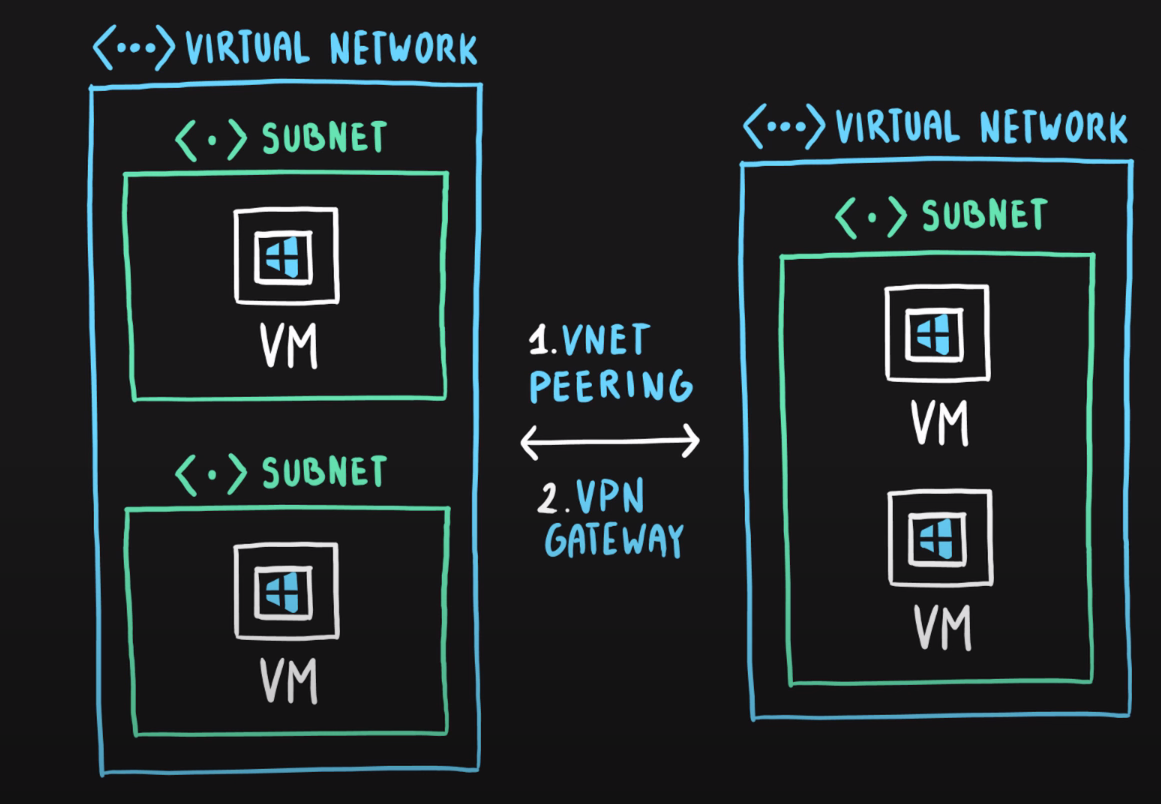 <···> VIRTUAL NETWORK
<·> SUBNET
VM
<·> SUBNET
VM
1. VNET
PEERING
2. VPN
GATEWAY
<···> VIRTUAL NETWORK
<·> SUBNET
VM
VM